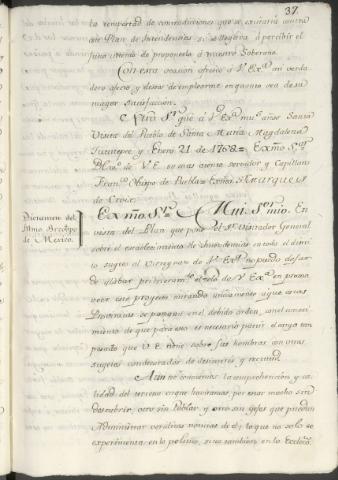 37
la tempestad de contradiciones que se excitaria contra
este Plan de Intendencias si se llegara á percibir el
justo intento de proponerlo á nuestro Soberano.
Con esta ocasion ofrezco á V. Exª mi verda
dero afecto y deseo de emplearme en quanto sea de su
mayor satisfaccion.
Nrô Sr. gue á V. Exª muchos años Santa
Visita del Pueblo de Santa Maria Magdalena
y Enero 21 de 1768 = Exmo. Sor.
BLmo. de V.E. su mas atento servidor y Capellan
Franco. Obispo de Puebla = Exmo. Sor. Marques
de Croix.
Dictamen del
Illmo Arzobpo
de Mexico.
Exmo. Sor. Mui Sr. mio. En
vista del Plan que pasó el Sr. Visitador General
sobre el establecimiento de Intendencias en todo el distri
to sugeto al Virreynato de V. Exª no puedo dejar
de alabar primeramte. el zelo de V. Exª en promo
ver este proyecto mirando unicamente á que estas
Provincias se pongan en el debido orden, con el conoci
miento de que para esto es necesario partir el cargo tan
pesado que V.E. tiene sobre sus hombros con otros
sugetos condecorados de desinterés y rectitud.
Aun no tenemos la comprehension y ca
lidad del terreno en que haviamos, por estar mucho sin
descubrir, otro sin Poblar, y otro sin gefes que puedan
Administrar verídicas noticias de él; lo que no solo se
experimenta en lo politico, sino tambien en lo Eccleco.